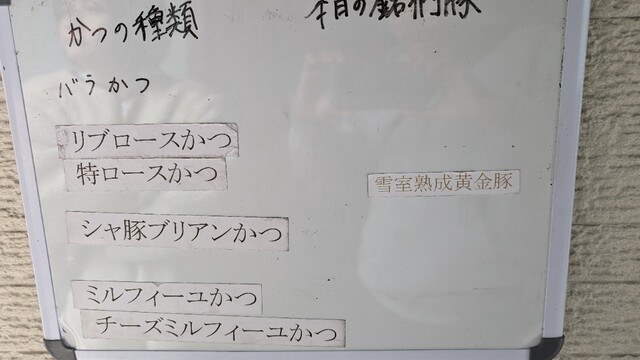 かつの種類
本日の銘柄豚
バラかつ
リブロースかつ
特ロースかつ
雪室熟成黄金豚
シャ豚ブリアンかつ
ミルフィーユかつ
チーズミルフィーユかつ